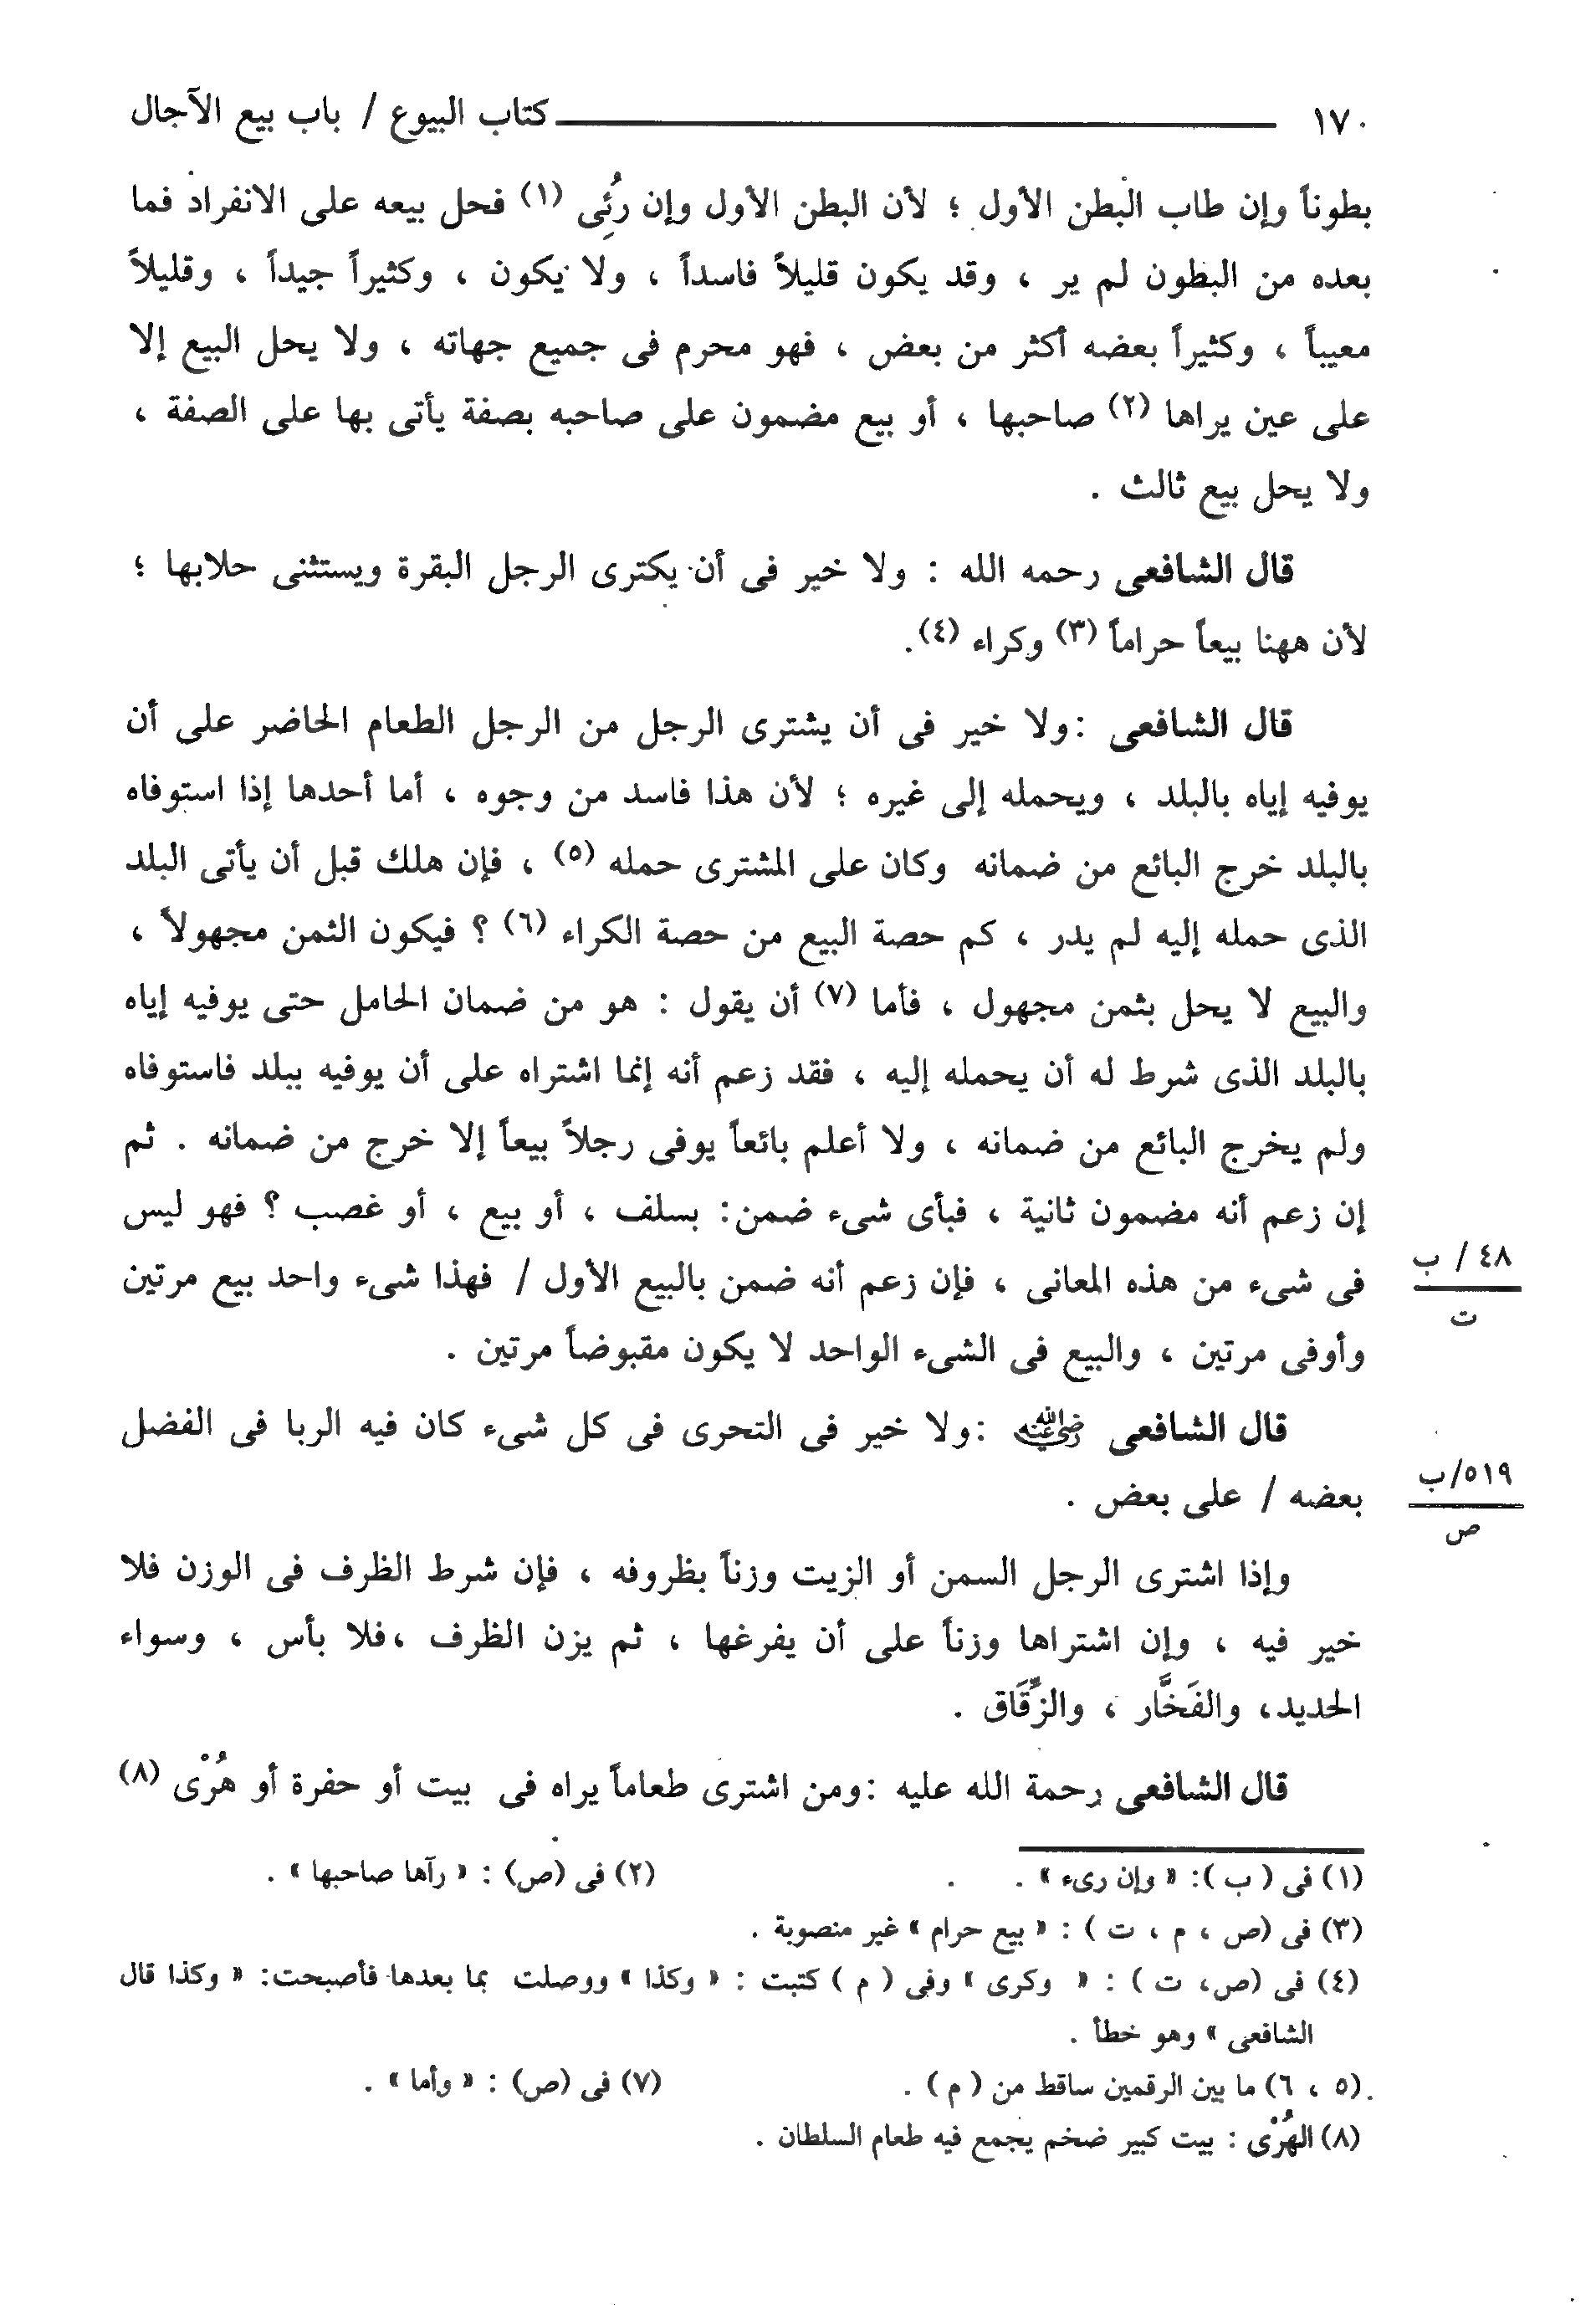 ١٧٠ كتاب البيوع / باب بيع الآجال
بطوناً وإن طاب البطن الأول ؛ لأن البطن الأول وإن رُئِى (١) فحل بيعه على الانفراد فما
بعده من البطون لم ير ، وقد يكون قليلاً فاسداً ، ولا يكون ، وكثيراً جيداً ، وقليلاً
معيباً ، وكثيراً بعضه أكثر من بعض ، فهو محرم فى جميع جهاته ، ولا يحل البيع إلا
على عين يراها (٢) صاحبها ، أو بيع مضمون على صاحبه بصفة يأتى بها على الصفة ،
ولا يحل بيع ثالث .
قال الشافعى رحمه الله : ولا خير فى أن يكترى الرجل البقرة ويستثنى حلابها ؛
لأن ههنا بيعاً حراماً (٣) وكراء (٤).
قال الشافعى :ولا خير فى أن يشترى الرجل من الرجل الطعام الحاضر على أن
يوفيه إياه بالبلد ، ويحمله إلى غيره ؛ لأن هذا فاسد من وجوه ، أما أحدها إذا استوفاه
بالبلد خرج البائع من ضمانه وكان على المشترى حمله (٥) ، فإن هلك قبل أن يأتى البلد
الذى حمله إليه لم يدر ، كم حصة البيع من حصة الكراء (٦) ؟ فيكون الثمن مجهولاً ،
والبيع لا يحل بثمن مجهول ، فأما (٧) أن يقول : هو من ضمان الحامل حتى يوفيه إياه
بالبلد الذى شرط له أن يحمله إليه ، فقد زعم أنه إنما اشتراه على أن يوفيه ببلد فاستوفاه
ولم يخرج البائع من ضمانه ، ولا أعلم بائعاً يوفى رجلاً بيعاً إلا خرج من ضمانه . ثم
إن زعم أنه مضمون ثانية ، فبأى شىء ضمن: بسلف ، أو بيع ، أو غصب ؟ فهو ليس
فى شىء من هذه المعانى ، فإن زعم أنه ضمن بالبيع الأول / فهذا شىء واحد بيع مرتين
٤٨ / ب
ت
وأوفى مرتين ، والبيع فى الشىء الواحد لا يكون مقبوضاً مرتين .
قال الشافعى رضي الله عنه :ولا خير فى التحرى فى كل شىء كان فيه الربا فى الفضل
بعضه / على بعض .
٥١٩/ب
ص
وإذا اشترى الرجل السمن أو الزيت وزناً بظروفه ، فإن شرط الظرف فى الوزن فلا
خير فيه ، وإن اشتراها وزناً على أن يفرغها ، ثم يزن الظرف ،فلا بأس ، وسواء
الحديد، والفَخَّار ، والزِّقَاق .
قال الشافعى رحمة الله عليه :ومن اشترى طعاماً يراه فى بيت أو حفرة أو هُرْى (٨)
(١) فى ( ب ): « وإن رىء » . (٢) فى (ص) : « رآها صاحبها » .
(٣) فى (ص ، م ، ت ) : « بيع حرام » غير منصوبة .
(٤) فى (ص، ت ) : « وكرى » وفى ( م ) كتبت : « وكذا » ووصلت بما بعدها فأصبحت: « وكذا قال
الشافعى » وهو خطأ .
(٥ ، ٦) ما بين الرقمين ساقط من ( م ) . (٧) فى (ص) : « وأما » .
(٨) الهُرْى : بيت كبير ضخم يجمع فيه طعام السلطان .